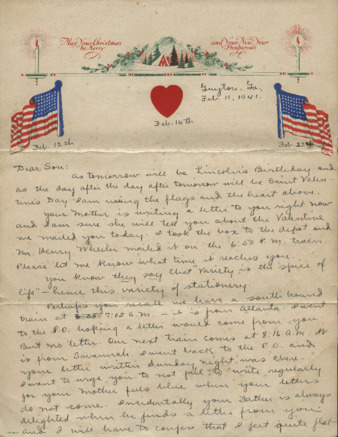 May Your Christmas be Merry
and Your New Year Prosperous
Guyton, Ga,
Feb. 11, 1941.
Feb. 12th
Feb. 14th
Feb. 22nd
Dear Son:
As tomorrow will be Lincoln's Birthday and
as the day after the day after tomorrow will be Saint Valen-
tine's Day I am using the flags and the heart above.
Your Mother is writing a letter to you right now
and I am sure she will tell you about the Valentine
we mailed you today. I took the box to the depot and
Mr. Henry Wheeler mailed it on the 6:50 P.M. train.
Please let me know what time it reaches you.
You know they say that "Variety is the spice of
life" - hence this variety of stationery.
Perhaps you recall we have a south bound
train at 7:05 A.M. - it is from Atlanta. I went
to the P.O. hoping a letter would come from you
But no letter. Our next train comes at 8:16 A.M. It
is from Savannah. I went back to the P.O. and
your letter written Sunday night was there.
I want to urge you to not fail to write regularly
for your Mother feels blue when your letters
do not come. Incidentally your Father is always
delighted when he finds a letter from you -
and I will have to confess that I feel quite flat-